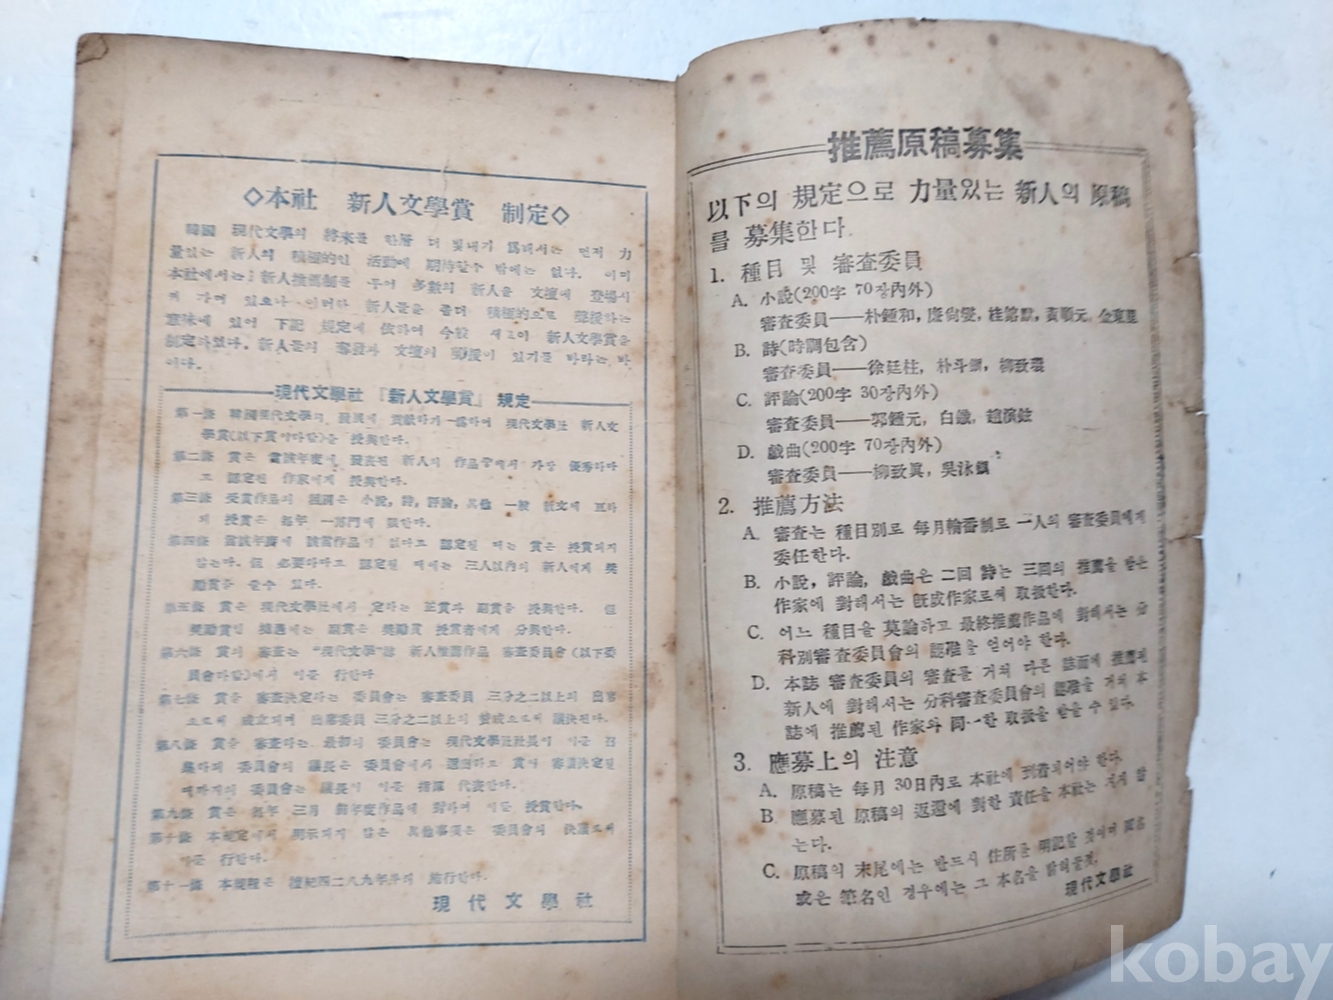 ◇本社 新人文學賞 制定◇
韓國 現代文學의 將來를 한層 더 빛내기 爲해서는 먼저 力
量있는 新人의 積極的인 活動에 期待할수 밖에는 없다. 이미
本社에서는 新人推薦制를 두어 多數의 新人을 文壇에 登場시
켜 가며 있으나 이러한 新人들을 좀더 積極的으로 聲援하는
意味에 있어 下記 規定에 依하여 今般 새로이 新人文學賞을
制定하였다. 新人들의 奮發과 文壇의 聲援이 있기를 바라는 바
이다.
現代文學社『新人文學賞』規定
第一條 韓國現代文學의 發展에 貢獻하기 爲하여 現代文學社 新人文
學賞(以下賞이라함)을 授與한다.
第二條 賞은 當該年度에 發表된 新人의 作品중에서 가장 優秀하다
고 認定된 作家에게 授與한다.
第三條 受賞作品의 範圍은 小說, 詩, 評論, 其他 一般 散文에 亘하
며 授賞은 每年 一部門에 限한다.
第四條 當該年度에 該當作品이 없다고 認定될 때는 賞은 授賞되지
않는다. 但 必要하다고 認定될 때에는 三人以內의 新人에게 奬
勵賞을 줄수 있다.
第五條 賞은 現代文學社에서 定하는 正賞과 副賞을 授與한다. 但
奬勵賞인 境遇에는 副賞은 奬勵賞 授賞者에게 分與한다.
第六條 賞의 審査는 “現代文學”誌 新人推薦作品 審査委員會(以下委
員會라함)에서 이를 行한다
第七條 賞을 審査決定하는 委員會는 審査委員 三分之二以上의 出席
으로써 成立되며 出席委員 三分之二以上의 贊成으로써 議決된다.
第八條 賞을 審査하는 最初의 委員會는 現代文學社社長이 이를 召
集하되 委員會의 議長은 委員會에서 選出하고 賞이 審査決定될
때까지의 委員會는 議長이 이를 指揮 代表한다.
第九條 賞은 每年 三月 前年度作品에 對하여 이를 授賞한다.
第十條 本規定에서 明示되지 않은 其他事項은 委員會의 決議로써
이를 行한다.
第十一條 本規程은 檀紀四二八九年부터 施行한다.
現代文學社
推薦原稿募集
以下의 規定으로 力量있는 新人의 原稿
를 募集한다.
1. 種目 및 審査委員
A. 小說(200字 70장內外)
審査委員——朴鍾和, 廉尙燮, 桂鎔默, 黃順元, 金東里
B. 詩(時調包含)
審査委員——徐廷柱, 朴斗鎭, 柳致環
C. 評論(200字 30장內外)
審査委員——郭鍾元, 白鐵, 趙演鉉
D. 戱曲(200字 70장內外)
審査委員——柳致眞, 吳泳鎭
2. 推薦方法
A. 審査는 種目別로 每月輪番制로 一人의 審査委員에게
委任한다.
B. 小說, 評論, 戱曲은 二回 詩는 三回의 推薦을 받은
作家에 對해서는 旣成作家로써 取扱한다.
C. 어느 種目을 莫論하고 最終推薦作品에 對해서는 分
科別審査委員會의 認准을 얻어야 한다.
D. 本誌 審査委員의 審査를 거쳐 다른 誌面에 推薦된
新人에 對해서는 分科審査委員會의 認准을 거쳐 本
誌에 推薦된 作家와 同一한 取扱을 받을 수 있다.
3. 應募上의 注意
A. 原稿는 每月 30日內로 本社에 到着되어야 한다.
B. 應募된 原稿의 返還에 對한 責任을 本社는 지지 않
는다.
C. 原稿의 末尾에는 반드시 住所를 明記할 것이며 匿名
或은 筆名인 경우에는 그 本名을 밝혀둘것.
現代文學社
kobay